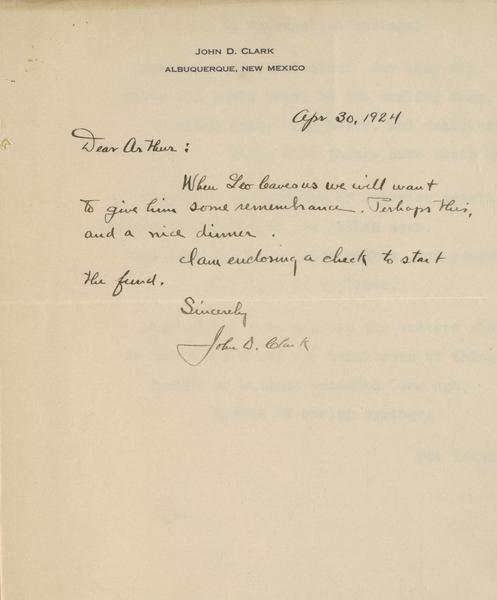 JOHN D. CLARK
ALBUQUERQUE, NEW MEXICO
Apr 30, 1924
Dear Arthur:
When Leo leaves us we will want
to give him some remembrance. Perhaps this,
and a nice dinner.
I am enclosing a check to start
the fund.
Sincerely
John D. Clark